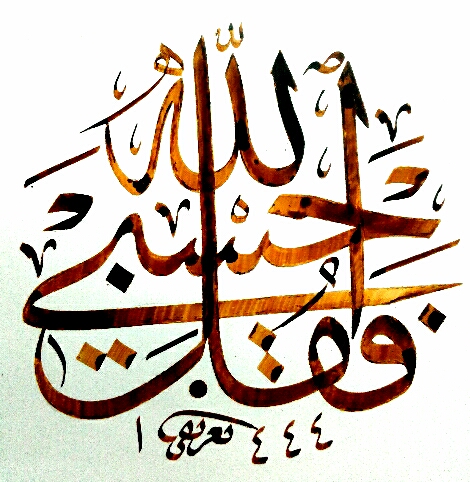 فقلت حسبي الله
١٤٤٤